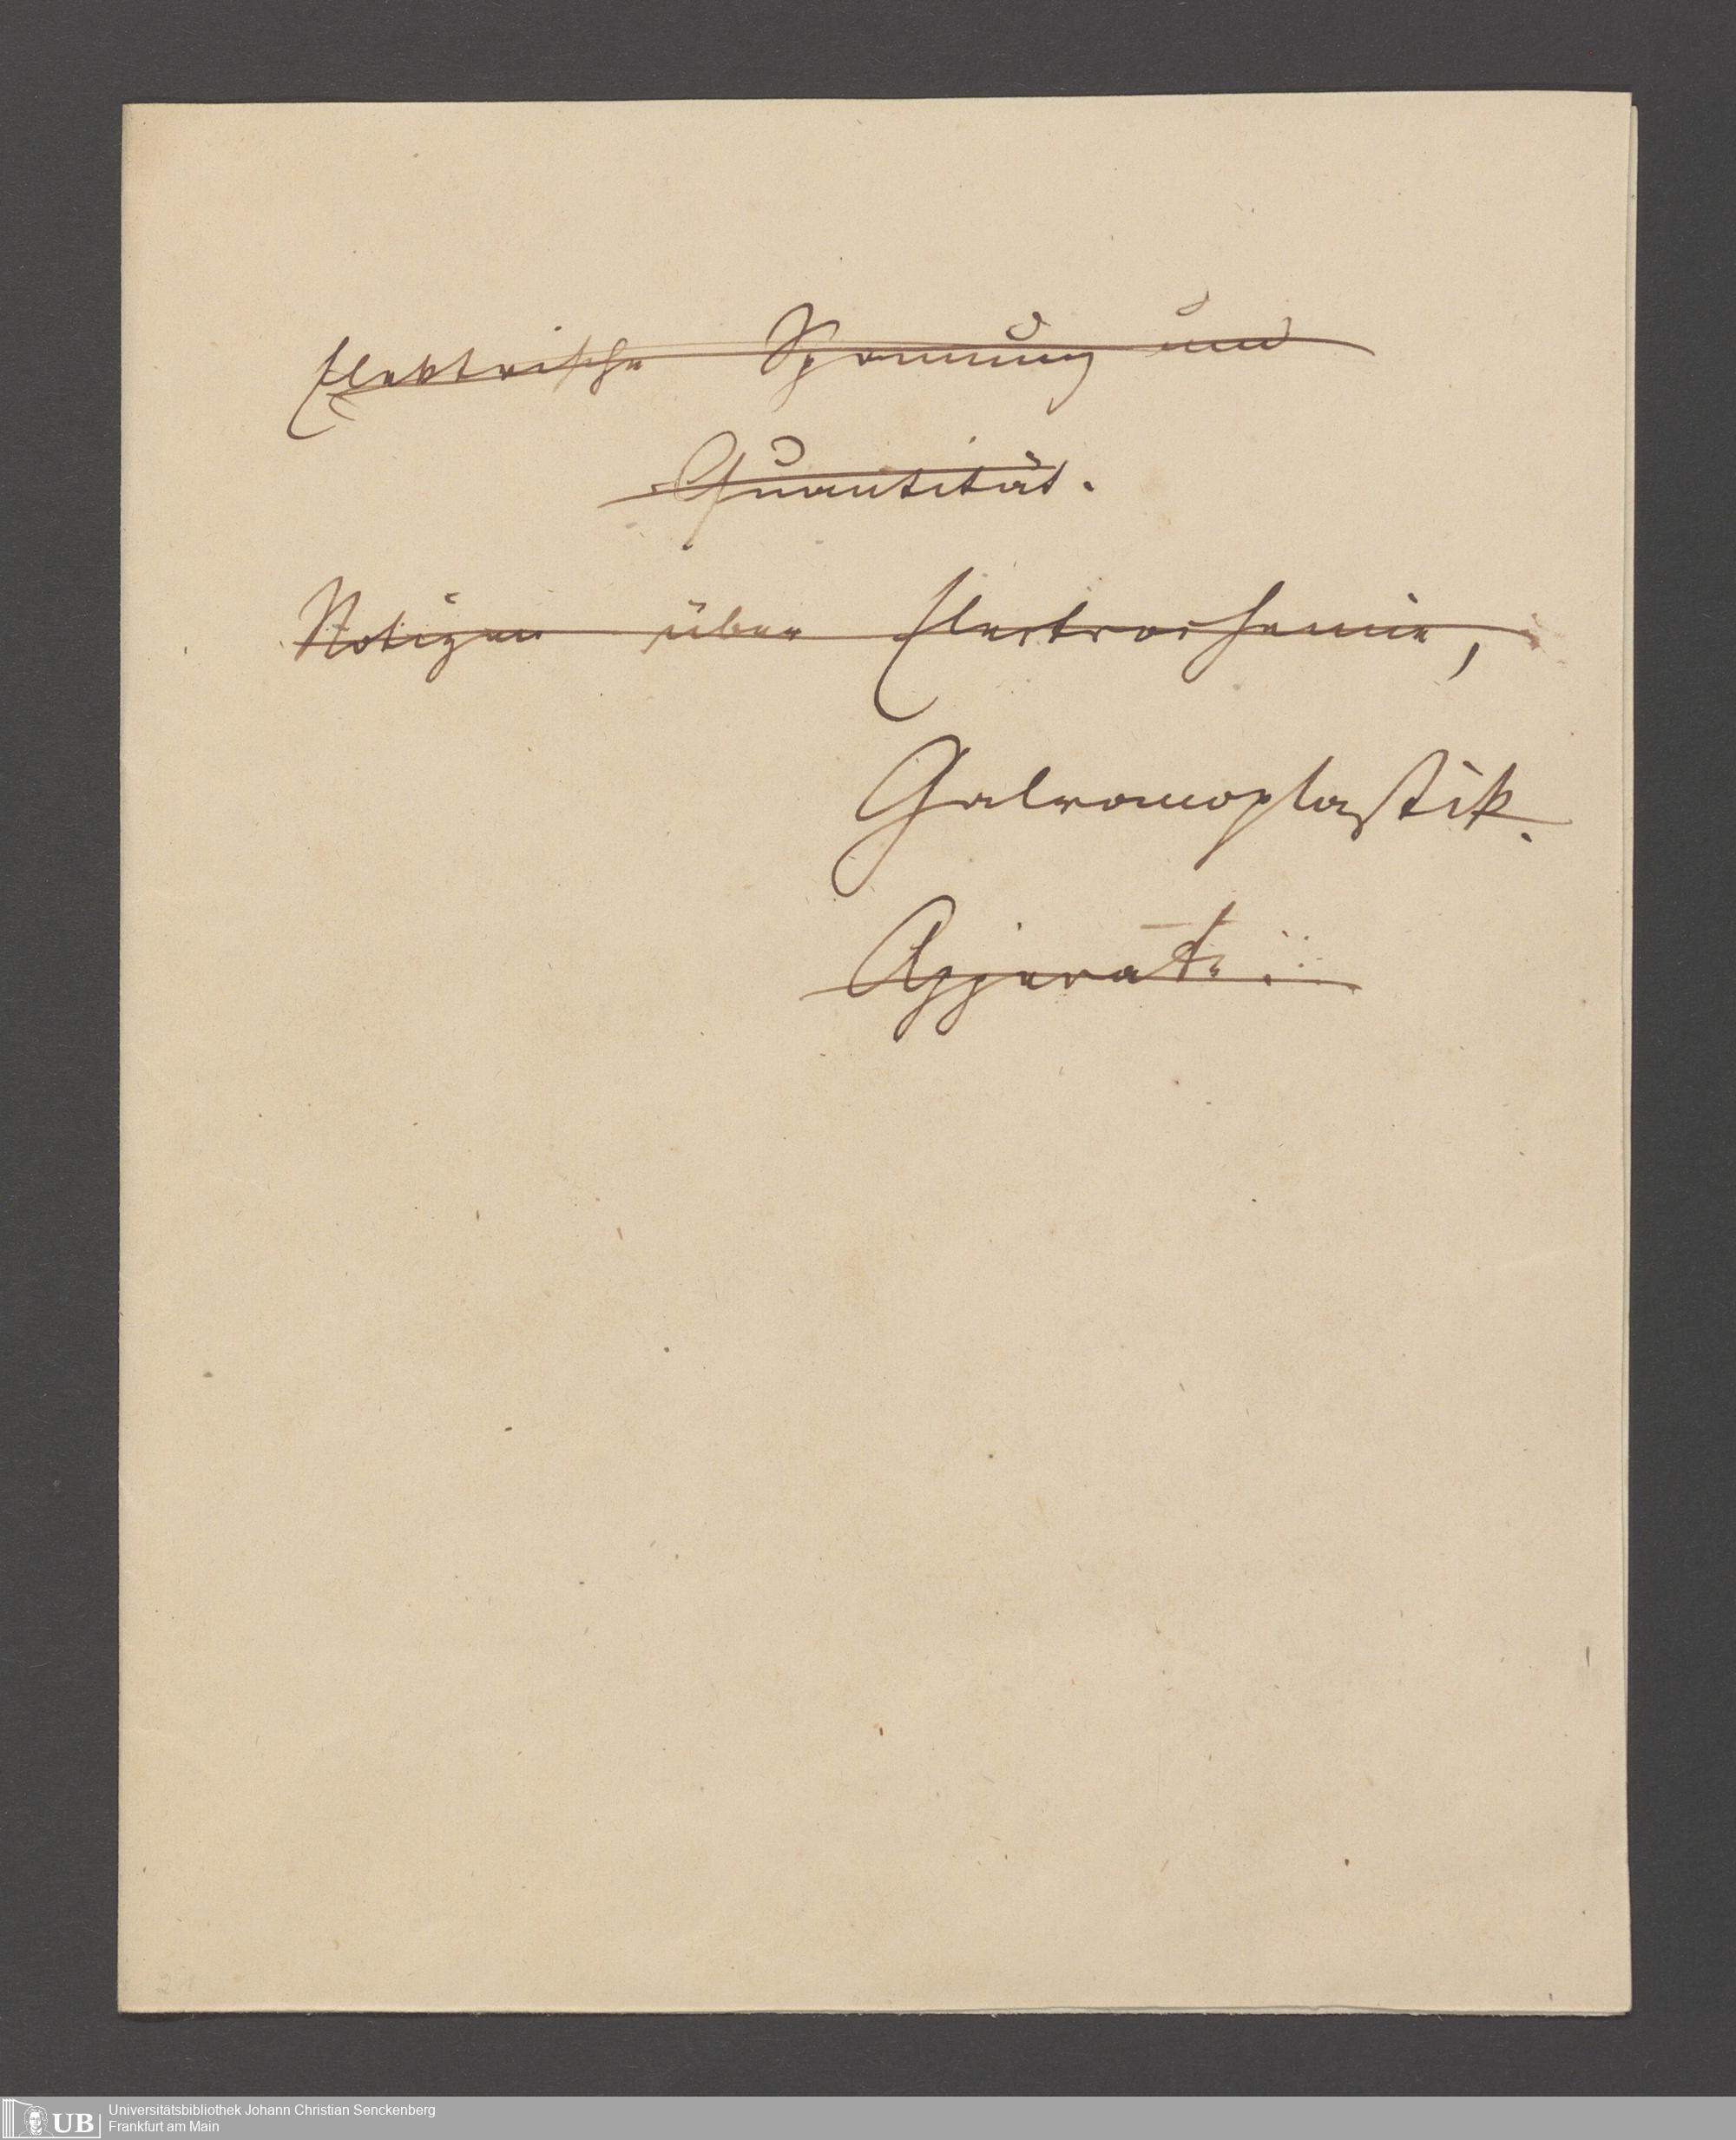 Elektrische Spannung und
Quantität.
Notizen über Electrochemie,
Galvanoplastik.
Apparate.
21
UB
Universitätsbibliothek Johann Christian Senckenberg
Frankfurt am Main